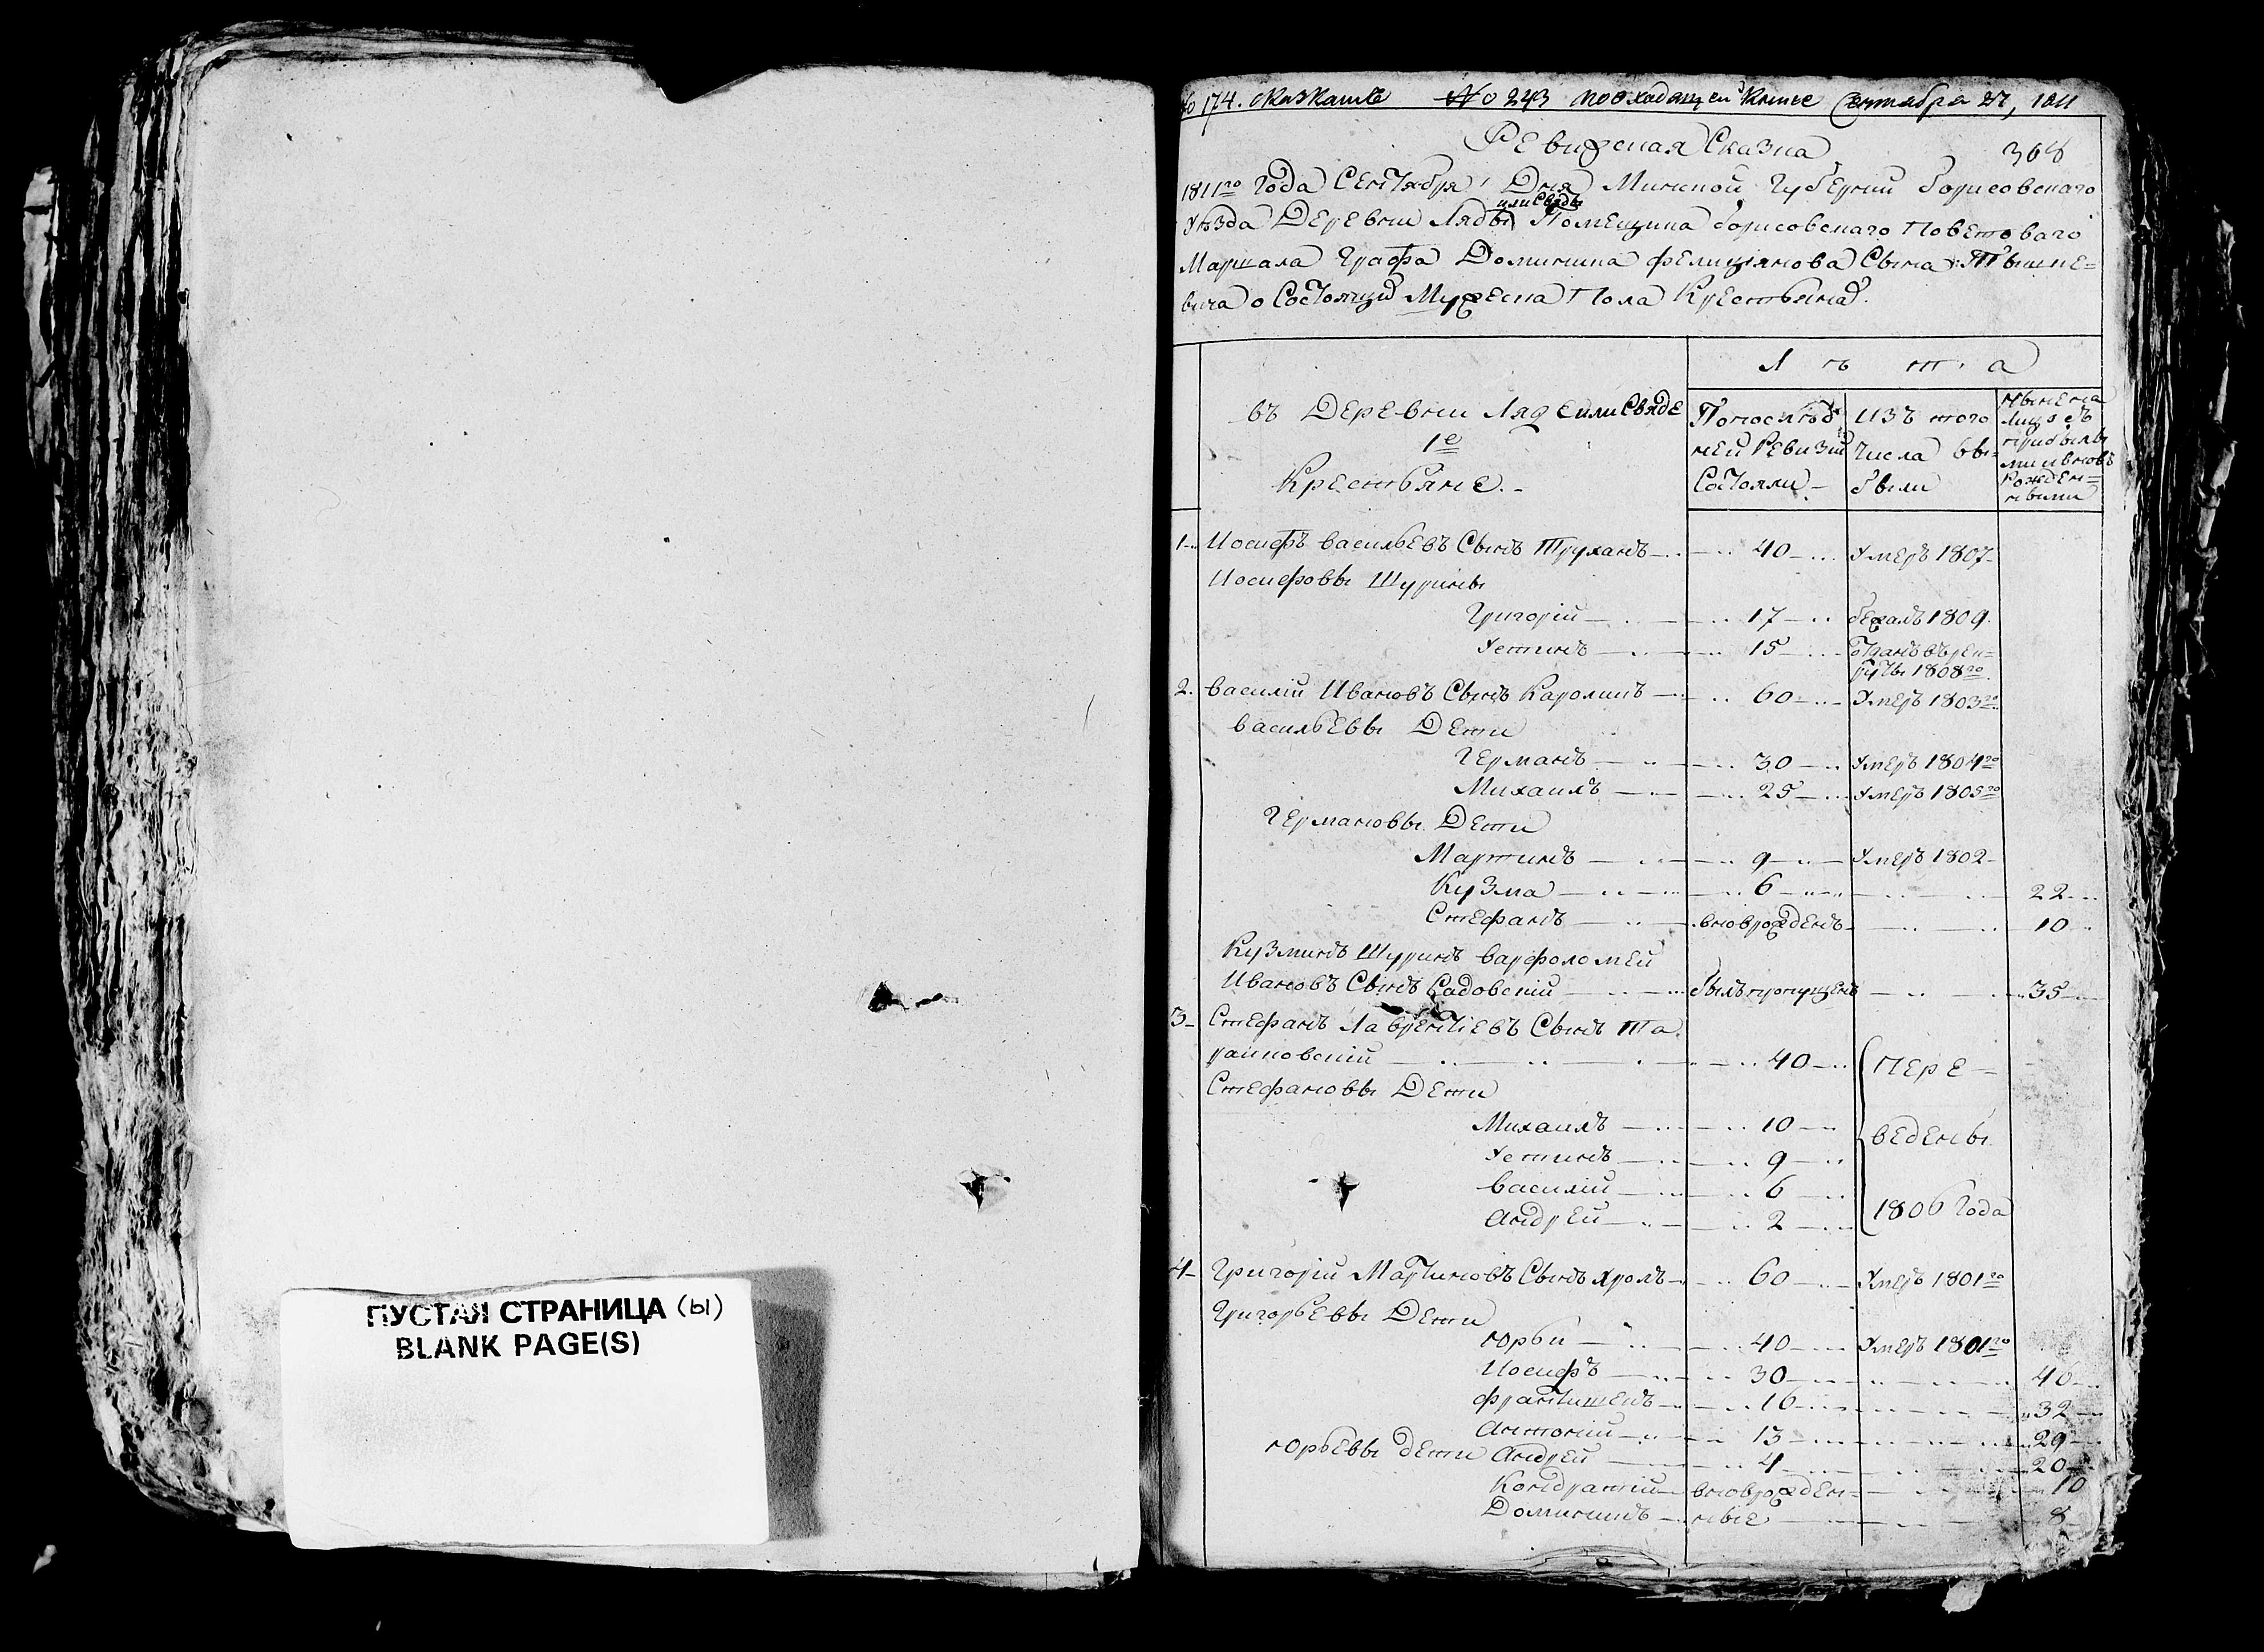 ПУСТАЯ СТРАНИЦА (ы)
BLANK PAGE(S)
174. № 243 по входящей книге Сентября 27, 1811
Ревизская Сказка 368
1811го Года Сентября Дня Минской Губернии Борисовскаго
или Свяды
уѣзда Деревни Ляды Помещика Борисовскаго Поветоваго
Маршала Графа Доминика Фелицiянова Сына Тышке=
вича о Состоящих Мужеска Пола Крестьянах.
Лѣта
въ Деревни Ляде или Свяде
1е
Крестьяне.
По послѣд
ней Ревизии
Состояли
изъ того
Числа вы=
были
Ныне на
лицо съ
прибылы
ми и вновь
рожден=
ными
1 Иосифъ Васильевъ Сынъ Труханъ 40 Умеръ 1807
Иосифовы Шурины
Григорiй 17 бежалъ 1809.
Устинъ 15 отданъ въ рек=
руты 1808го
2. Василiй Ивановъ Сынъ Кароликъ 60 Умеръ 1803го
Васильевы Дети
Германъ 30 Умеръ 1804го
Михаилъ 25 Умеръ 1805го
Германовы Дети
Мартинъ 9 Умеръ 1802
Кузма 6 22
Стефанъ вновърожденъ 10
Кузминъ Шуринъ Варфоломей
Ивановъ Сынъ Садовскiй былъ пропущенъ 35
3 Стефанъ Лаврентiевъ Сынъ Та
раиковскiй 40 пере
Стефановы Дети
Михаилъ 10 ведены
Устинъ 9
Василiй 6
Андрей 2 1806 года
4 Григорiй Мартиновъ Сынъ Хромъ 60 Умеръ 1801го
Григорьевы Дети
Юрьи 40 Умеръ 1801го
Иосифъ 30 40
Францишекъ 16 32
Антонiй 13 29
Юрьевы дети Андрей 4 20
Кондратiй вноврожден= 10
Доминикъ ные 8